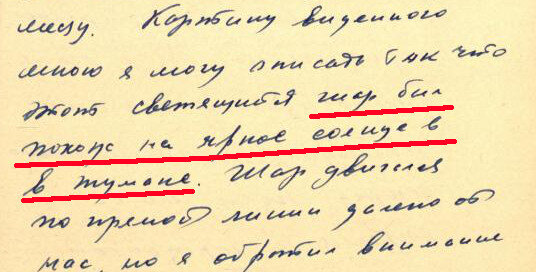 лизу. Картину виденного
мною я могу описать так что
этот светящийся шар был
похож на яркое солнце в
в тумане. Шар двигался
по прямой линии далеко от
нас, но я обратил внимание